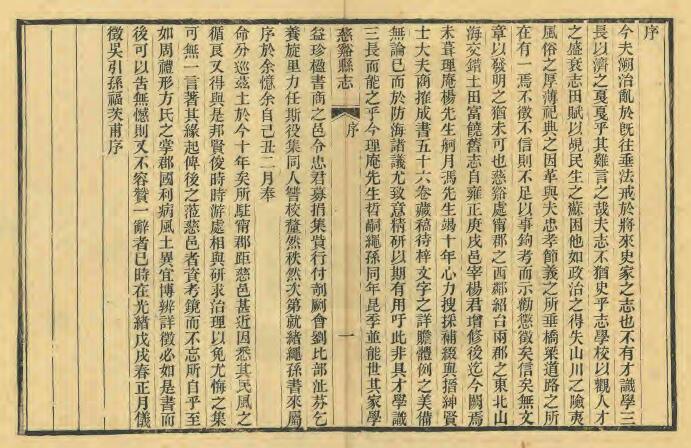 序
今夫剏治亂於旣往垂法戒於將來史家之志也不有才識學三
長以濟之戞戞乎其難言之哉夫志不猶史乎志學校以觀人才
之盛衰志田賦以覘民生之蘇困他如政治之得失山川之險夷
風俗之厚薄祀典之因革與夫忠孝節義之所垂橋梁道路之所
在有一焉不徵不信則不足以事鉤考而示勸懲徵矣信矣無文
章以發明之猶未可也慈谿處甯郡之西鄰紹台兩郡之東北山
海交錯土田富饒舊志自雍正庚戌邑宰楊君增修後迄今闕焉
未葺理庵楊先生舸月馮先生竭十年心力搜採補綴與搢紳賢
士大夫商搉成書五十六卷藏稿待梓文字之詳贍體例之美備
無論已而於防海諸議尤致意精研以期有用吁此非具才學識
三長而能之乎今理庵先生哲嗣繩孫同年昆季並能世其家學
慈谿縣志
序
一
益珍楹書商之邑令忠君募捐集貲行付剞劂會劉比部沚芬乞
養旋里力任斯役集同人讐校釐然秩然次第就緒繩孫書來屬
序於余憶余自己丑二月奉
命分巡茲土於今十年矣所駐甯郡距慈邑甚近因悉其民風之
循良又得與是邦賢俊時時游處相與研求治理以免尤悔之集
可無一言著其緣起俾後之涖慈邑者資考鏡而不忘所自乎至
如周禮形方氏之掌郡國利病風土異宜博辨詳徵必如是書而
後可以告無憾則又不容贊一辭者已時在光緒戊戌春正月儀
徵吳引孫福茨甫序